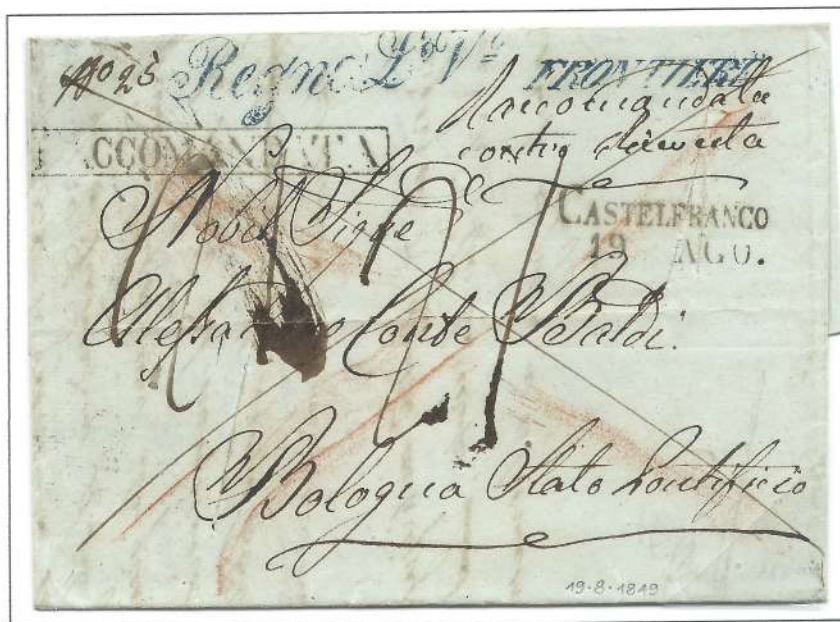 No 25
Regno L.º V.º FRONTIERE
Raccomandata
RACCOMANDATA
contro ricevuta
CASTELFRANCO
19 AGO.
Nobil Sigre
Alessandro Conte Baldi.
Bologna Stato Pontificio
19-8-1849